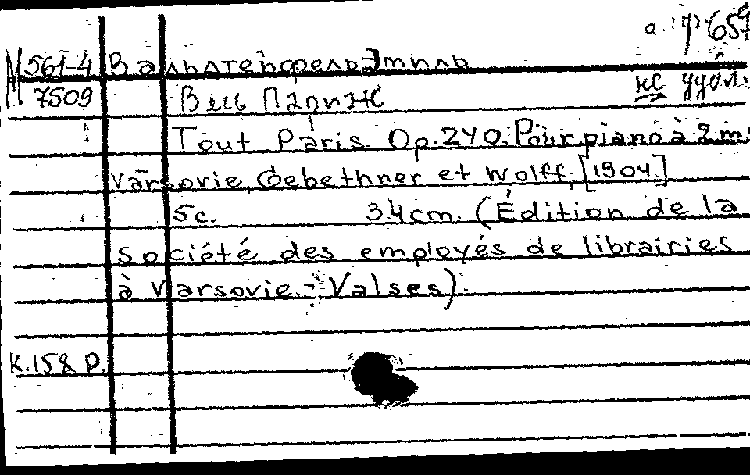 М 561-4 Вальдтейфель Эмиль
7509 Весь Париж
Tout Paris. Op. 240. Pour piano à 2 m.
Varsovie, Gebethner et Wolff, [1904]
5c. 34cm. (Édition de la
société des employés de librairies
à Varsovie - Valses).
К.158 р.